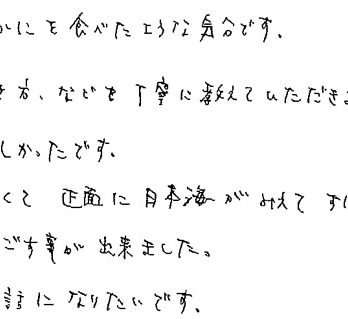 かにを食べたような気分です。
き方、などを丁寧に教えていただきま
しかったです。
くて 正面に日本海がみえて すば
ごす事が出来ました。
話になりたいです。